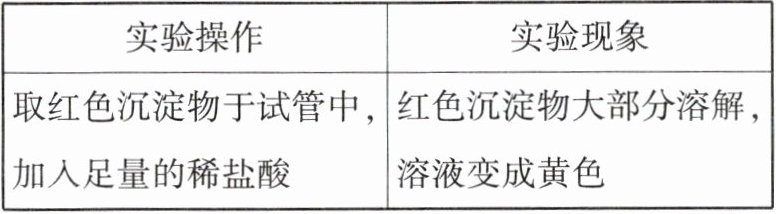 实验操作 实验现象
取红色沉淀物于试管中, 红色沉淀物大部分溶解,
加入足量的稀盐酸 溶液变成黄色